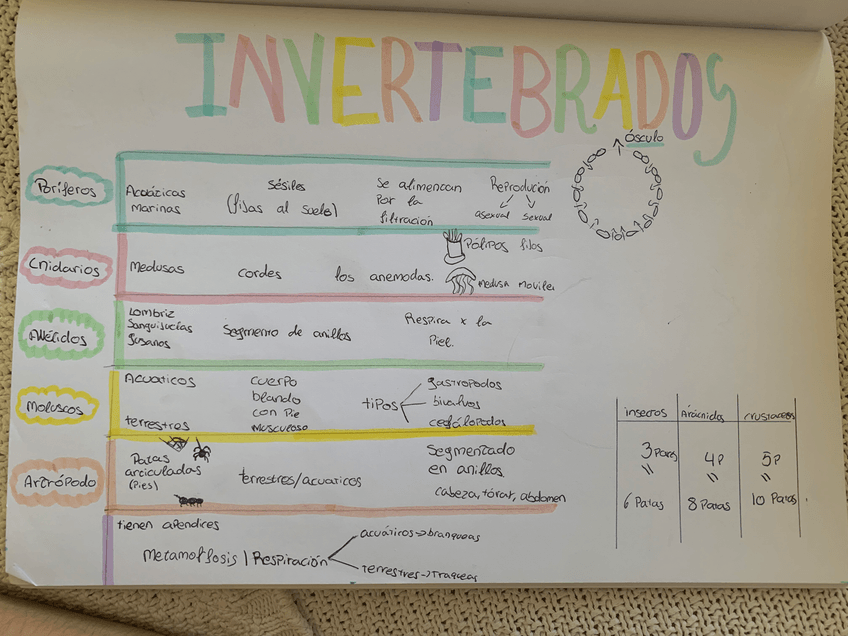 INVERTEBRADOS
ósculo
Poríferos
Acuázicas
marinas
sésiles
(fijas al suelo)
Se alimencan
Por la
filtración
Reprodución
asexual sexual
Cnidarios
Medusas
cordes
los anemodas.
Pólipos fijos
medusa moviles
Anélidos
Lombriz
Sanguijucías
gusanos
Segmento de anillos
Respira x la
Piel.
Moluscos
Acuaticos
terrestres
cuerpo
blando
con Pie
musculoso
tipos
gastropodos
bivalvos
cefálopodos
Artrópodo
Patas
articuladas
(Pies)
terrestres/acuaticos
Segmentado
en anillos.
cabeza, tórax, abdomen
tienen apendices
Metamorfosis | Respiración
acuáticos→branqueas
terrestres→Traqueas
insectos Arácnidos crustaceos
3 Pares 4P 5P
= = =
6 Patas 8 Patas 10 Patas